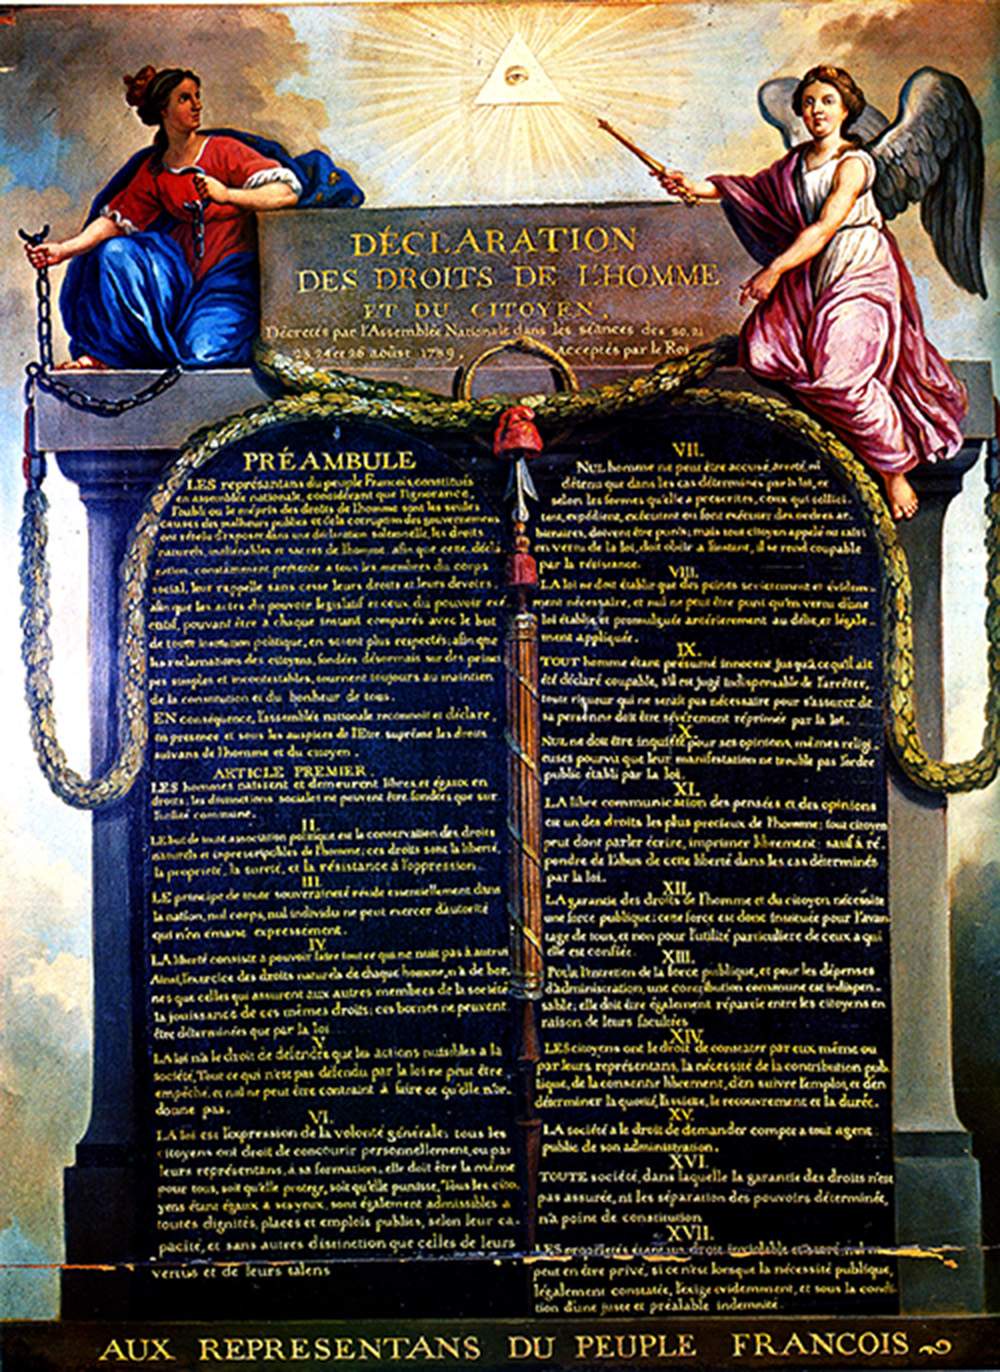 DÉCLARATION
DES DROITS DE L'HOMME
ET DU CITOYEN,
Décrétés par l'Assemblée Nationale dans les séances des 20, 21
23, 24 et 26 août 1789, acceptés par le Roi
PRÉAMBULE
LES représantans du peuple Francois, constitués
en assemblée nationale, considérant que l'ignorance,
l'oubli ou le mépris des droits de l'homme sont les seules
causes des malheurs publics et de la corruption des gouvernemens
ont résolu d'exposer dans une déclaration solemnelle, les droits
naturels, inaliénables et sacrés de l'homme, afin que cette décla
ration, constamment présente a tous les membres du corps
social, leur rappelle sans cesse leurs droits et leurs devoirs,
afin que les actes du pouvoir législatif et ceux du pouvoir exé
cutif, pouvant être a chaque instant comparés avec le but
de toute institution politique, en soient plus respectés; afin que
les reclamations des citoyens, fondées désormais sur des princi
pes simples et incontestables, tournent toujours au maintien
de la constitution et du bonheur de tous.
EN conséquence, l'assemblée nationale reconnoit et déclare,
en presence et sous les auspices de l'Etre suprême les droits
suivans de l'homme et du citoyen.
ARTICLE PREMIER
LES hommes naissent et demeurent libres et égaux en
droits; les distinctions sociales ne peuvent être fondées que sur
l'utilité commune.
II.
LE but de toute association politique est la conservation des droits
naturels et imprescriptibles de l'homme; ces droits sont la liberté,
la propriété, la sureté, et la résistance à l'oppression.
III.
LE principe de toute souveraineté réside essentiellement dans
la nation, nul corps, nul individu ne peut exercer d'autorité
qui n'en émane expressément.
IV.
LA liberté consiste a pouvoir faire tout ce qui ne nuit pas à autrui
Ainsi, l'exercice des droits naturels de chaque homme, n'a de bor-
nes que celles qui assurent aux autres membres de la société
la jouissance de ces mêmes droits; ces bornes ne peuvent
être déterminées que par la loi
V.
LA loi n'a le droit de défendre que les actions nuisibles a la
société. Tout ce qui n'est pas défendu par la loi ne peut être
empêché, et nul ne peut être contraint à faire ce qu'elle n'or-
donne pas.
VI.
LA loi est l'expression de la volonté générale; tous les
citoyens ont droit de concourir personnellement, ou par
leurs représentans, à sa formation; elle doit être la même
pour tous, soit qu'elle protege, soit qu'elle punisse. Tous les cito
yens étant égaux a ses yeux, sont également admissibles a
toutes dignités, places et emplois publics, selon leur ca-
pacité, et sans autres distinction que celles de leurs
vertus et de leurs talens
VII.
NUL homme ne peut être accusé, arreté, ni
détenu que dans les cas déterminés par la loi, et
selon les formes qu'elle a prescrites, ceux qui sollici
tent, expédient, exécutent ou font exécuter des ordres ar-
bitraires, doivent être punis; mais tout citoyen appelé ou saisi
en vertu de la loi, doit obéir a l'instant, il se rend coupable
par la résistance.
VIII.
LA loi ne doit établir que des peines strictement et évidem-
ment nécessaire, et nul ne peut être puni qu'en vertu d'une
loi établie, et promulguée antérieurement au délit, et légale-
ment appliquée.
IX.
TOUT homme étant présumé innocent jusqu'à ce qu'il ait
été déclaré coupable, s'il est jugé indispensable de l'arrêter,
toute rigueur qui ne serait pas nécessaire pour s'assurer de
sa personne doit être sévèrement réprimée par la loi.
X.
NUL ne doit être inquiété pour ses opinions, mêmes religi-
euses pourvu que leur manifestation ne trouble pas l'ordre
public établi par la loi.
XI.
LA libre communication des pensées et des opinions
est un des droits les plus precieux de l'homme; tout citoyen
peut dont parler écrire, imprimer librement; sauf à ré-
pondre de l'abus de cette liberté dans les cas déterminés
par la loi.
XII.
LA garantie des droits de l'homme et du citoyen nécessite
une force publique; cette force est donc instituée pour l'avan-
tage de tous, et non pour l'utilité particuliere de ceux a qui
elle est confiée.
XIII.
POUR l'entretien de la force publique, et pour les dépenses
d'administration, une contribution commune est indispen-
sable; elle doit être également répartie entre les citoyens en
raison de leurs facultées
XIV.
LES citoyens ont le droit de constater par eux même ou
par leurs représentans, la nécessité de la contribution pub
lique, de la consentir librement, d'en suivre l'emploi, et d'en
déterminer la quotité, l'assiette, le recouvrement et la durée.
XV.
LA société a le droit de demander compte a tout agent
public de son administration.
XVI.
TOUTE société, dans laquelle la garantie des droits n'est
pas assurée, ni les séparation des pouvoirs déterminée,
n'a point de constitution
XVII.
LES propriétés étant un droit inviolable et sacré, nul ne
peut en être privé, si ce n'est lorsque la nécessité publique,
légalement constatée, l'exige evidemment, et sous la condi-
tion d'une juste et préalable indemnité.
AUX REPRESENTANS DU PEUPLE FRANCOIS